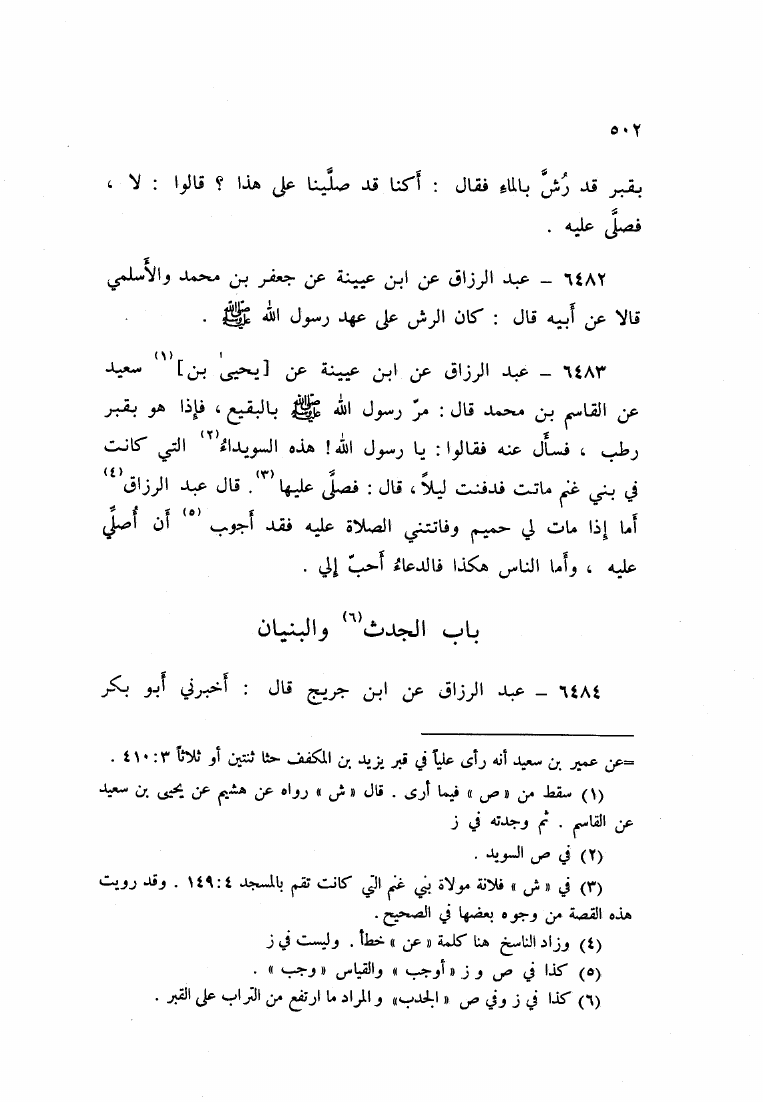 ٥٠٢
بقبر قد رُشَّ بالماء فقال : أكنا قد صلَّينا على هذا ؟ قالوا : لا ،
فصلَّى عليه .
٦٤٨٢ – عبد الرزاق عن ابن عيينة عن جعفر بن محمد والأَسلمي
قالا عن أَبيه قال : كان الرش على عهد رسول الله ﷺ .
٦٤٨٣ – عبد الرزاق عن ابن عيينة عن [يحيىٰ بن](١) سعيد
عن القاسم بن محمد قال : مرّ رسول الله ﷺ بالبقيع ، فإذا هو بقبر
رطب ، فسأَل عنه فقالوا : يا رسول الله! هذه السويداءُ(٢) التي كانت
في بني غنم ماتت فدفنت ليلاً ، قال : فصلَّى عليها(٣). قال عبد الرزاق(٤)
أما إذا مات لي حميم وفاتتني الصلاة عليه فقد أَجوب (٥) أن أُصلِّي
عليه ، وأما الناس هكذا فالدعاءُ أَحبّ إلي .
باب الجدث(٦) والبنيان
٦٤٨٤ – عبد الرزاق عن ابن جريج قال : أَخبرني أَبو بكر
=عن عمير بن سعيد أنه رأى علياً في قبر يزيد بن المكفف حثا ثنتين أو ثلاثاً ٣: ٤١٠ .
(١) سقط من « ص » فيما أرى . قال « ش » رواه عن هشيم عن يحيى بن سعيد
عن القاسم . ثم وجدته في ز
(٢) في ص السويد .
(٣) في « ش » فلانة مولاة بني غنم التي كانت تقم بالمسجد ٤: ١٤٩ . وقد رويت
هذه القصة من وجوه بعضها في الصحيح .
(٤) وزاد الناسخ هنا كلمة « عن » خطأ . وليست في ز
(٥) كذا في ص و ز « أوجب » والقياس « وجب » .
(٦) كذا في ز وفي ص « الجدب» والمراد ما ارتفع من التراب على القبر .